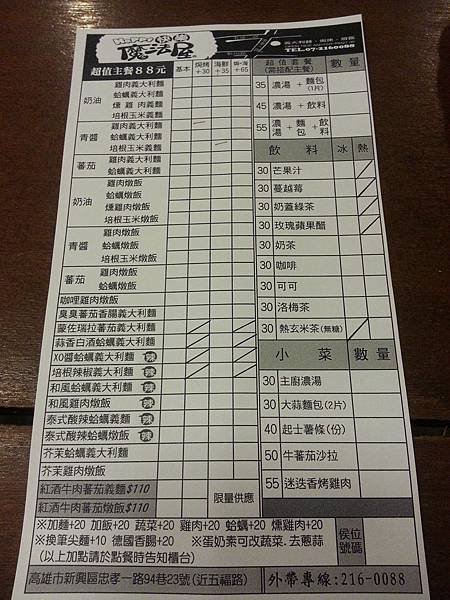 Happy 快樂
魔法屋
義大利麵．焗烤．燉飯
TEL.07-2160088
超值主餐88元
基本
焗烤+30
海鮮+35
焗+海+65
超值套餐 (需搭配主餐) 數量
奶油
雞肉義大利麵
蛤蠣義大利麵
燻雞肉義麵
培根玉米義麵
青醬
雞肉義大利麵
蛤蠣義大利麵
培根玉米義麵
蕃茄
雞肉義大利麵
蛤蠣義大利麵
奶油
雞肉燉飯
蛤蠣燉飯
燻雞肉燉飯
培根玉米燉飯
青醬
雞肉燉飯
蛤蠣燉飯
培根玉米燉飯
蕃茄
雞肉燉飯
蛤蠣燉飯
咖哩雞肉燉飯
臭臭蕃茄香腸義大利麵
蒙佐瑞拉蕃茄義大利麵
蒜香白酒蛤蠣義大利麵
XO醬蛤蠣義大利麵 辣
培根辣椒義大利麵 辣
和風蛤蠣義大利麵 辣
和風雞肉燉飯 辣
泰式酸辣蛤蠣義麵 辣
泰式酸辣蛤蠣燉飯 辣
芥末蛤蠣義大利麵
芥末雞肉燉飯
紅酒牛肉蕃茄義麵$110
紅酒牛肉蕃茄燉飯$110
限量供應
35 濃湯 + 麵包(1片)
45 濃湯 + 飲料
55 濃湯 + 麵包 + 飲料
飲料 冰 熱
30 芒果汁
30 蔓越莓
30 奶蓋綠茶
30 玫瑰蘋果醋
30 奶茶
30 咖啡
30 可可
30 洛梅茶
30 熱玄米茶(無糖)
小菜 數量
30 主廚濃湯
30 大蒜麵包(2片)
40 起士薯條(份)
50 牛蕃茄沙拉
55 迷迭香烤雞肉
※加麵+20 加飯+20 蔬菜+20 雞肉+20 蛤蠣+20 燻雞肉+20
※換筆尖麵+10 德國香腸+20 ※蛋奶素可改蔬菜.去蔥蒜
(以上加點請於點餐時告知櫃台)
侯位號碼
高雄市新興區忠孝一路94巷23號(近五福路)
外帶專線:216-0088